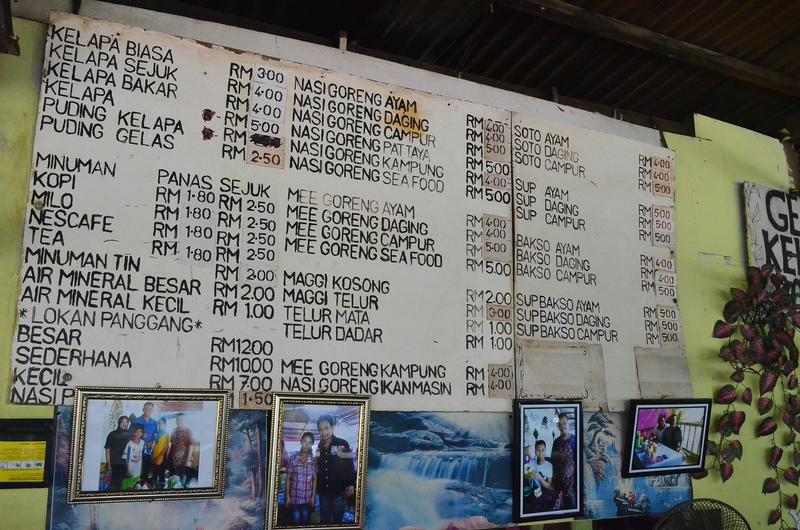 KELAPA BIASA RM 3.00
KELAPA SEJUK RM 4.00
KELAPA BAKAR RM 4.00
KELAPA RM 5.00
PUDING KELAPA RM
PUDING GELAS RM 2.50
MINUMAN PANAS SEJUK
KOPI RM 1.80 RM 2.50
MILO RM 1.80 RM 2.50
NESCAFE RM 1.80 RM 2.50
TEA RM 1.80 RM 2.50
MINUMAN TIN RM 2.00
AIR MINERAL BESAR RM 2.00
AIR MINERAL KECIL RM 1.00
*LOKAN PANGGANG*
BESAR RM12.00
SEDERHANA RM10.00
KECIL RM 7.00
NASI 1.50
NASI GORENG AYAM RM 4.00
NASI GORENG DAGING RM 4.00
NASI GORENG CAMPUR RM 5.00
NASI GORENG PATTAYA RM 5.00
NASI GORENG KAMPUNG RM 4.00
NASI GORENG SEA FOOD RM 5.00
MEE GORENG AYAM RM 4.00
MEE GORENG DAGING RM 4.00
MEE GORENG CAMPUR RM 5.00
MEE GORENG SEA FOOD RM 5.00
MAGGI KOSONG RM 2.00
MAGGI TELUR RM 3.00
TELUR MATA RM 1.00
TELUR DADAR RM 1.00
MEE GORENG KAMPUNG RM 4.00
NASI GORENG IKAN MASIN RM 4.00
SOTO AYAM RM 4.00
SOTO DAGING RM 4.00
SOTO CAMPUR RM 5.00
SUP AYAM RM 5.00
SUP DAGING RM 5.00
SUP CAMPUR RM 5.00
BAKSO AYAM RM 4.00
BAKSO DAGING RM 4.00
BAKSO CAMPUR RM 5.00
SUP BAKSO AYAM RM 5.00
SUP BAKSO DAGING RM 5.00
SUP BAKSO CAMPUR RM 5.00